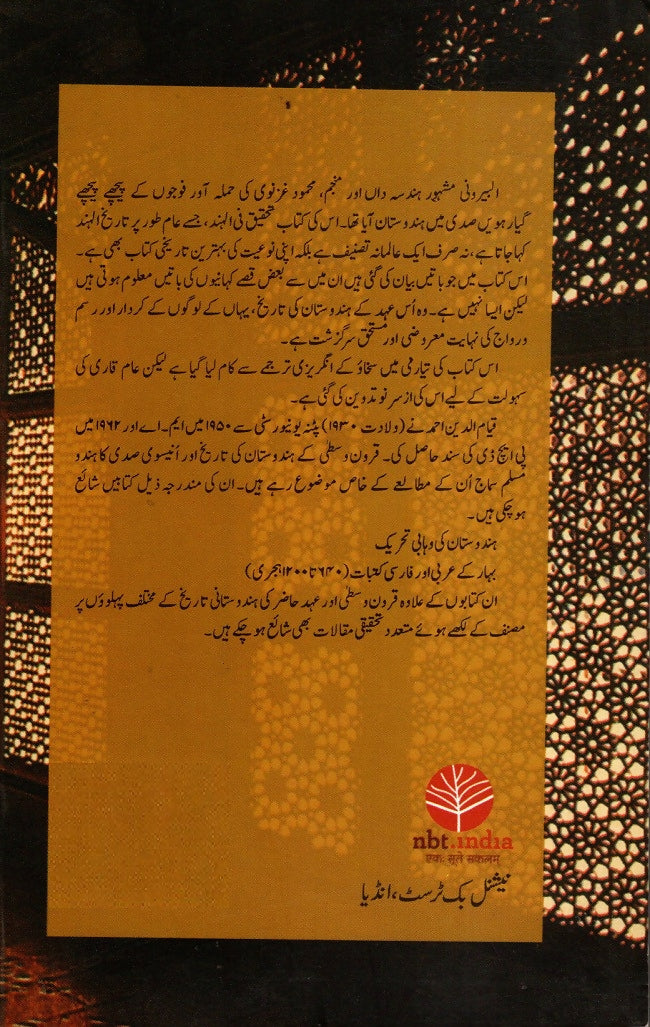 البیرونی مشہور ہندسہ داں اور منجم، محمود غزنوی کی حملہ آور فوجوں کے پیچھے پیچھے
گیارھویں صدی میں ہندوستان آیا تھا۔ اس کی کتاب تحقیق فی الہند، جسے عام طور پر تاریخ الہند
کہا جاتا ہے، نہ صرف ایک عالمانہ تصنیف ہے بلکہ اپنی نوعیت کی بہترین تاریخی کتاب بھی ہے۔
اس کتاب میں جو باتیں بیان کی گئی ہیں ان میں سے بعض قصے کہانیوں کی باتیں معلوم ہوتی ہیں
لیکن ایسا نہیں ہے۔ وہ اُس عہد کے ہندوستان کی تاریخ، یہاں کے لوگوں کے کردار اور رسم
و رواج کی نہایت معروضی اور مستحق سرگزشت ہے۔
اس کتاب کی تیاری میں سخاؤ کے انگریزی ترجمے سے کام لیا گیا ہے لیکن عام قاری کی
سہولت کے لیے اس کی از سر نو تدوین کی گئی ہے۔
قیام الدین احمد نے (ولادت ۱۹۳۰) پٹنہ یونیورسٹی سے ۱۹۵۰ میں ایم۔ اے اور ۱۹۶۲ میں
پی ایچ ڈی کی سند حاصل کی۔ قرون وسطیٰ کے ہندوستان کی تاریخ اور اُنیسوی صدی کا ہندو
مسلم سماج اُن کے مطالعے کے خاص موضوع رہے ہیں۔ ان کی مندرجہ ذیل کتابیں شائع
ہو چکی ہیں۔
ہندوستان کی وہابی تحریک
بہار کے عربی اور فارسی کتبات (۶۴۰ تا ۱۲۰۰ ہجری)
ان کتابوں کے علاوہ قرون وسطیٰ اور عہد حاضر کی ہندوستانی تاریخ کے مختلف پہلوؤں پر
مصنف کے لکھے ہوئے متعدد تحقیقی مقالات بھی شائع ہو چکے ہیں۔
nbt.india
एकः सूते सकलम्
نیشنل بک ٹرسٹ، انڈیا